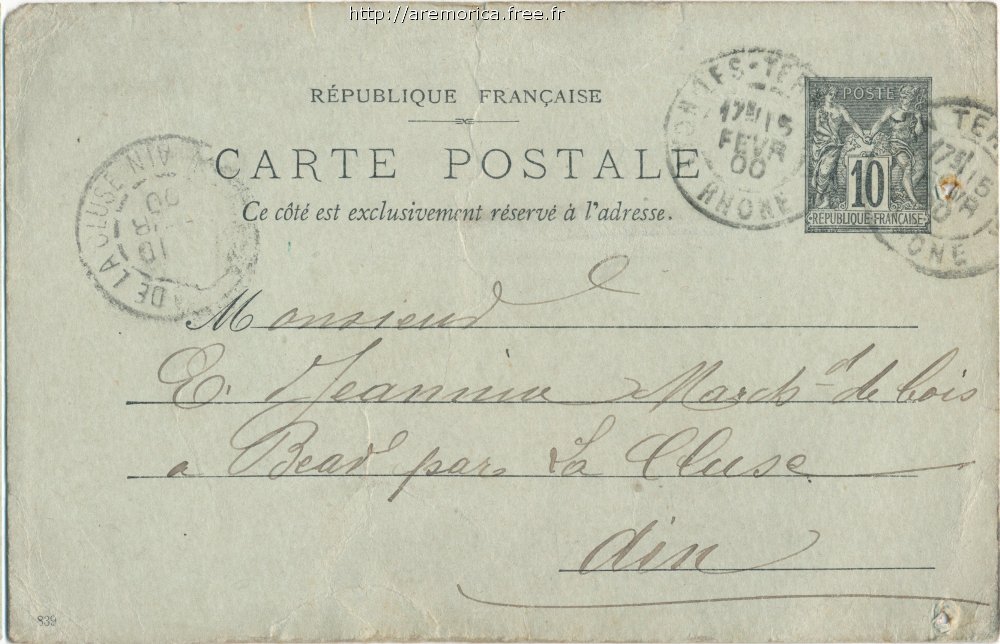 http://aremorica.free.fr
RÉPUBLIQUE FRANÇAISE
CARTE POSTALE
Ce côté est exclusivement réservé à l'adresse.
LYON-LES-TER
17E 15
FEVR
00
RHONE
POSTE
10
RÉPUBLIQUE FRANÇAISE
TER
17E 15
EVR
0
ONE
DE LA CLUSE AIN
10
00
Monsieur
E. Jeannin March-d de bois
a Béard par La Cluse
Ain
839